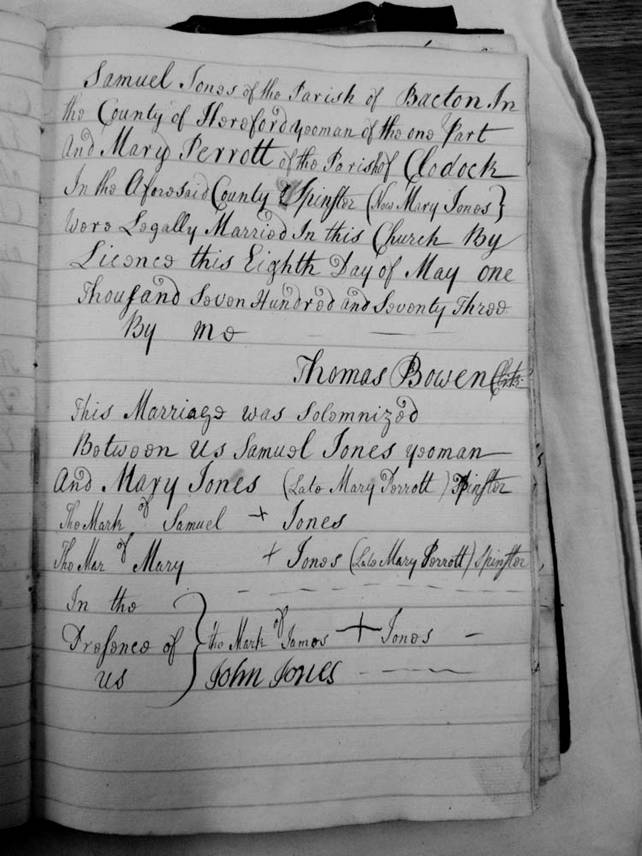 Samuel Jones of the Parish of Bacton In
the County of Hereford yeoman of the one Part
And Mary Perrott of the Parish of Clodock
In the Aforesaid County Spinster (Now Mary Jones)
Were Legally Married In this Church By
Licence this Eighth Day of May one
Thousand Seven Hundred and Seventy Three
By me
Thomas Bowen Clerk
This Marriage was Solemnized
Between Us Samuel Jones yeoman
And Mary Jones (Late Mary Perrott) Spinster
The Mark of Samuel + Jones
The Mar of Mary + Jones (Late Mary Perrott) Spinster
In the
Presence of } the Mark of James + Jones
us John Jones